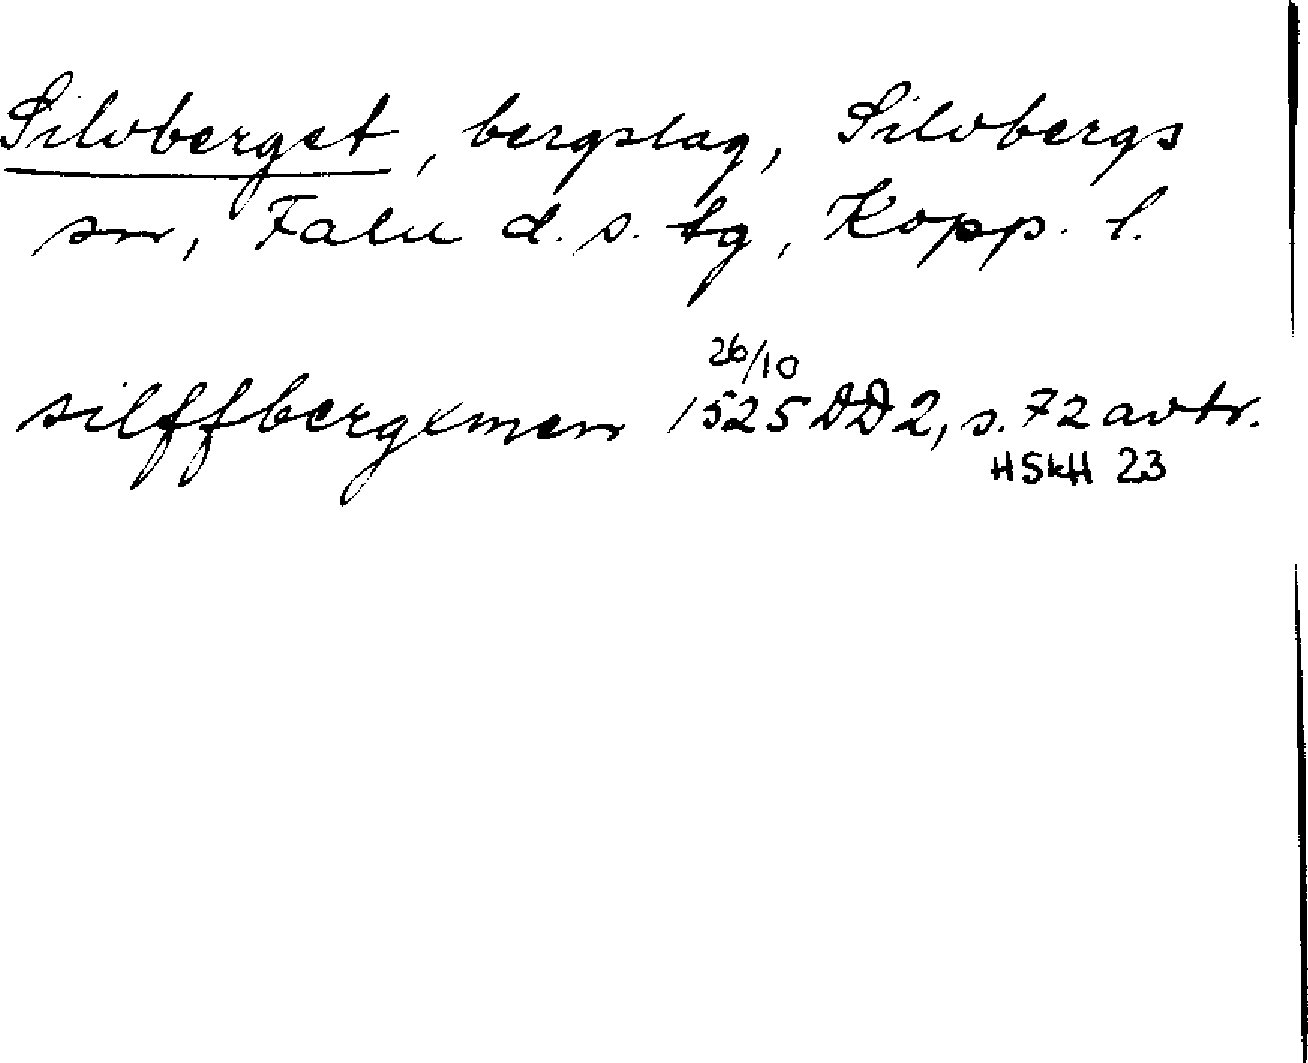 Silvberget, bergslag, Silvbergs
sn, Falu d.s. tg, Kopp. l.
26/10
silffbergxmen 1525 DD2, s. 72 avtr.
HSkH 23